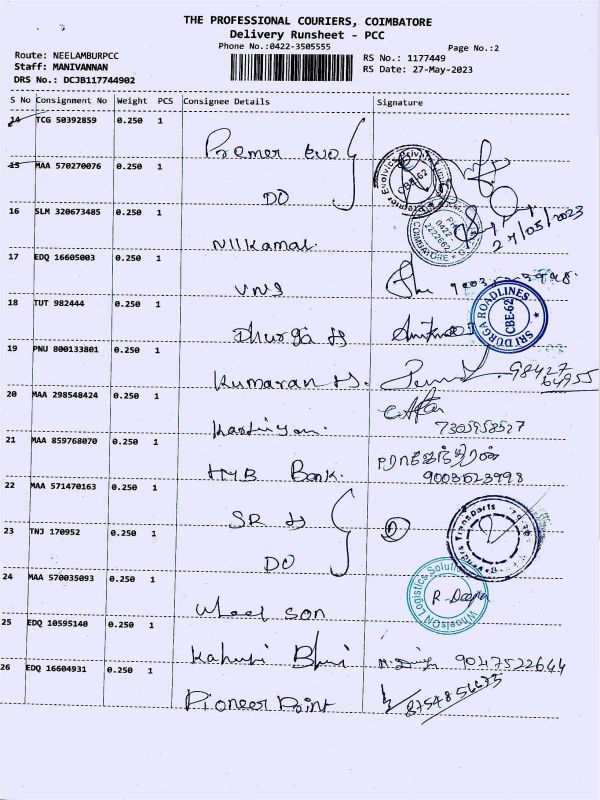 THE PROFESSIONAL COURIERS, COIMBATORE
Delivery Runsheet - PCC
Phone No.:0422-3505555
Page No.:2
Route: NEELAMBURPCC
Staff: MANIVANNAN
DRS No.: DCJB117744902
RS No.: 1177449
RS Date: 27-May-2023
S No Consignment No Weight PCS Consignee Details Signature
14 TCG 50392859 0.250 1 Premer Evo
15 MAA 570270076 0.250 1 DO
CBE-62
16 SLM 320673485 0.250 1 Nilkamal
COIMBATORE
27/05/2023
17 EDQ 16605003 0.250 1 VNS
18 TUT 982444 0.250 1 Dhurga
SRI DURGA ROADLINES
CBE-62
19 PNU 800133801 0.250 1 Kumaran
98427
64955
20 MAA 298548424 0.250 1
7305958527
21 MAA 859768070 0.250 1 Bank.
9003623998
22 MAA 571470163 0.250 1 SR
23 TNJ 170952 0.250 1 DO
Transports
24 MAA 570035093 0.250 1 Wheel Son
WheelsON Logistics Solutions
R. Deepa
25 EDQ 10595140 0.250 1
9047522644
26 EDQ 16604931 0.250 1 Pioneer Point